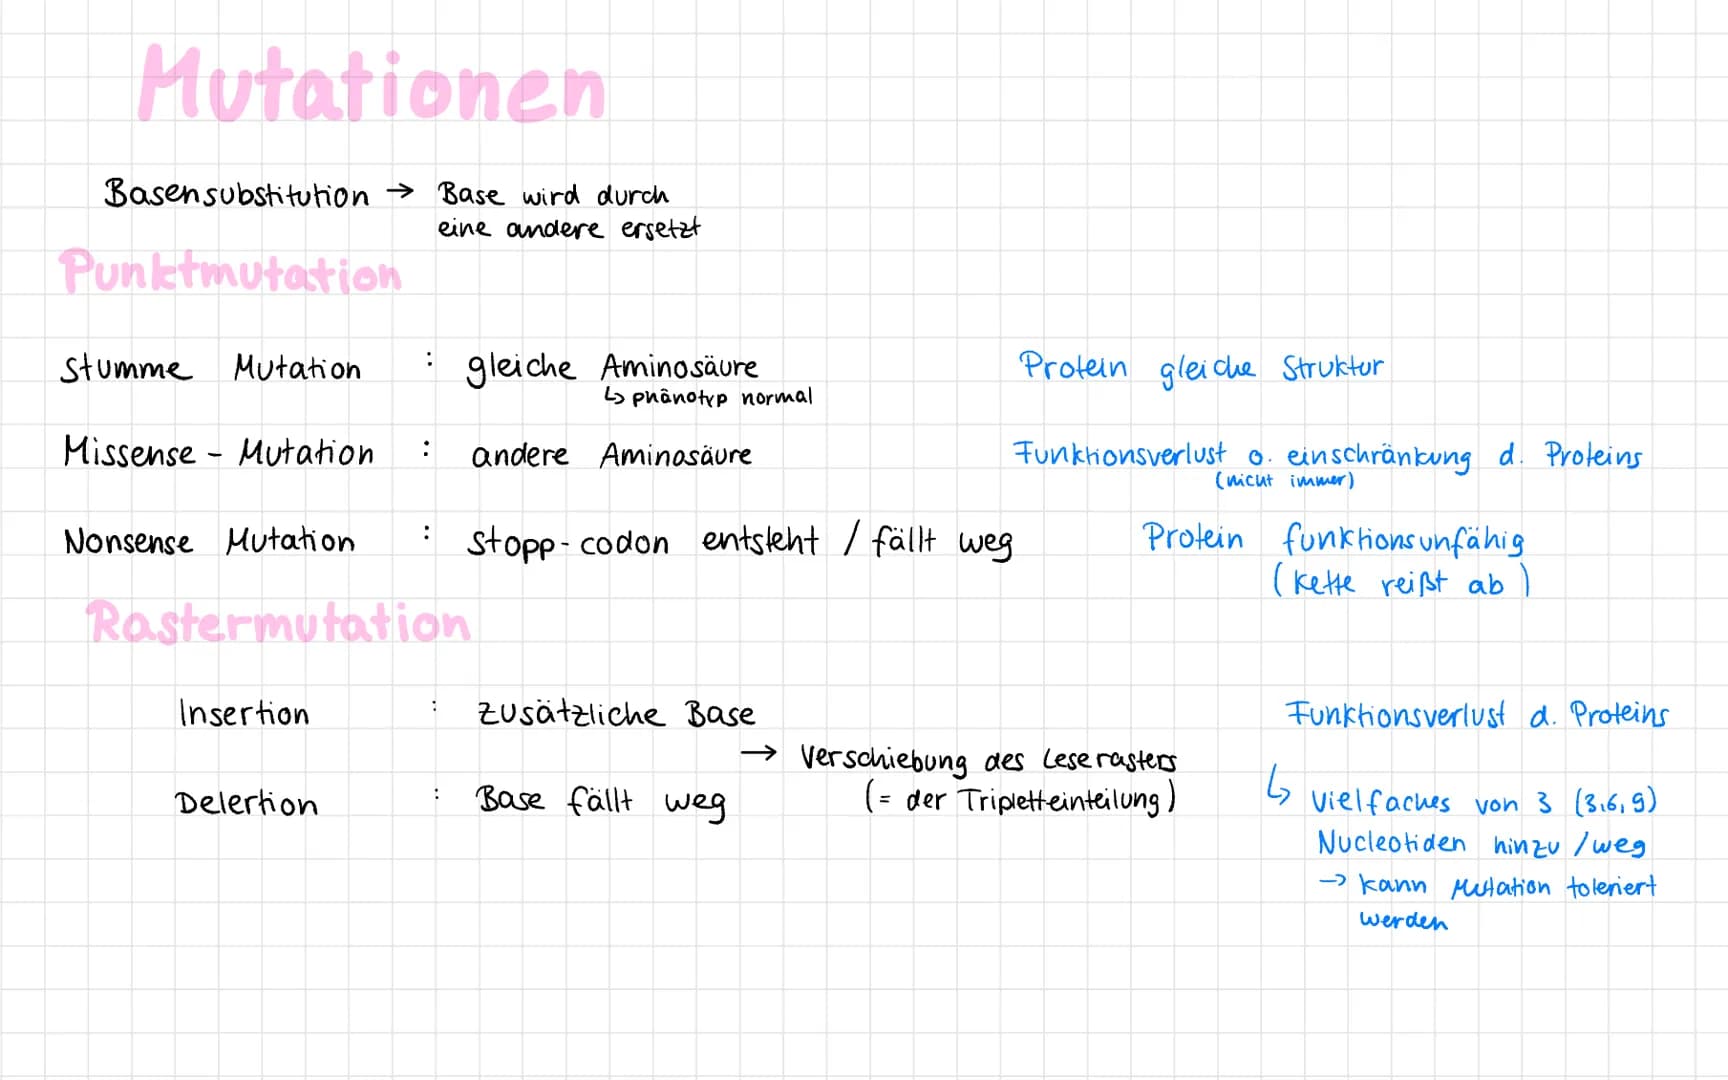 Mutationen
Basensubstitution → Base wird durch
eine andere ersetzt
Punktmutation
Stumme Mutation : gleiche Aminosäure Protein gleiche Struktur
↳ phänotyp normal
Missense - Mutation : andere Aminosäure Funktionsverlust o. einschränkung d. Proteins
(nicht immer)
Nonsense Mutation : Stopp-codon entsteht / fällt weg Protein funktionsunfähig
(Kette reißt ab)
Rastermutation
Insertion : zusätzliche Base Funktionsverlust d. Proteins
→ Verschiebung des Leserasters
(= der Tripletteinteilung)
Delertion : Base fällt weg
↳ Vielfaches von 3 (3,6,9)
Nucleotiden hinzu / weg
→ kann Mutation toleriert
werden